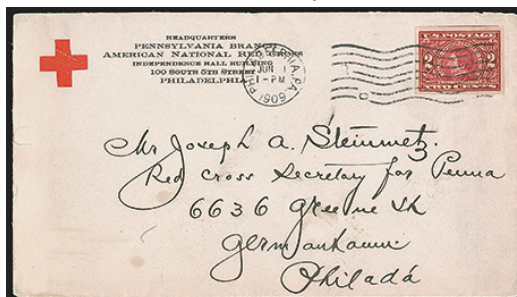 HEADQUARTERS
PENNSYLVANIA BRANCH
AMERICAN NATIONAL RED CROSS
INDEPENDENCE HALL BUILDING
100 SOUTH 5TH STREET
PHILADELPHIA
PHILADELPHIA, PA.
JUN 1
1-PM
1909
U.S. POSTAGE
2 2
TWO CENTS
Mr Joseph A. Steinmetz.
Red Cross Secretary for Penna
6636 Greene St
Germantown
Philada